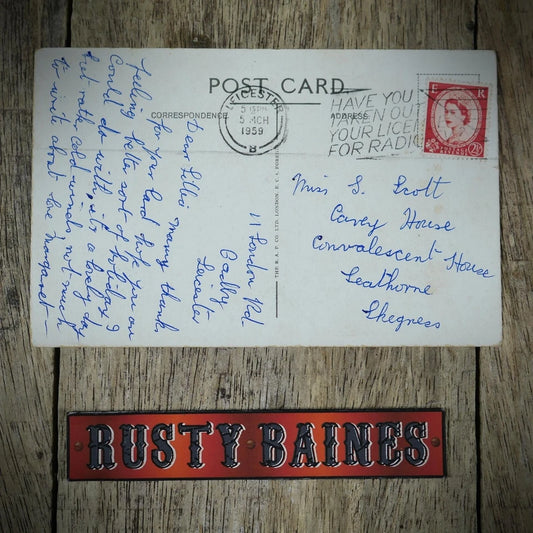 POST CARD
CORRESPONDENCE
ADDRESS
LEICESTER
5 MCH
1959
B
HAVE YOU
TAKEN OU
YOUR LICEN
FOR RADI
E R
POSTAGE
REVENUE
2½
11 London Rd.
Oadby
Leicester
Dear many thanks
for your card hope you are
feeling better sort of holiday I
could do with, it is a lovely day
but rather cold winds not much
to write about love Margaret —
THE R. A. P. CO. LTD. LONDON. E. C. 4.
Miss S. Scott
Carey House
Convalescent House
Seathorne
Skegness
RUSTY BAINES